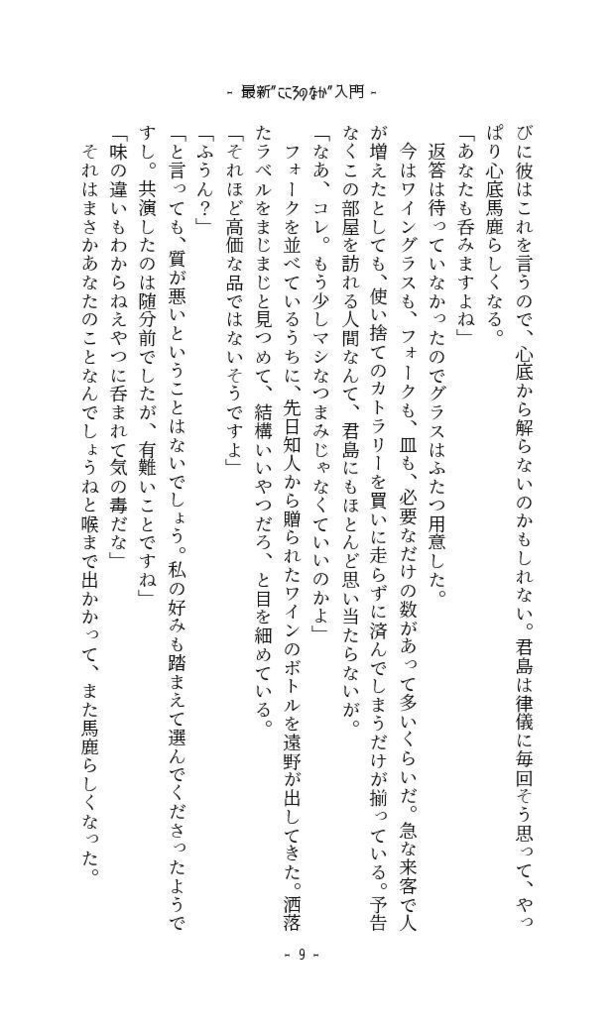 - 最新"こころのなか"入門 -
びに彼はこれを言うので、心底から解らないのかもしれない。君島は律儀に毎回そう思って、やっ
ぱり心底馬鹿らしくなる。
「あなたも呑みますよね」
返答は待っていなかったのでグラスはふたつ用意した。
今はワイングラスも、フォークも、皿も、必要なだけの数があって多いくらいだ。急な来客で人
が増えたとしても、使い捨てのカトラリーを買いに走らずに済んでしまうだけが揃っている。予告
なくこの部屋を訪れる人間なんて、君島にもほとんど思い当たらないが。
「なあ、コレ。もう少しマシなつまみじゃなくていいのかよ」
フォークを並べているうちに、先日知人から贈られたワインのボトルを遠野が出してきた。洒落
たラベルをまじまじと見つめて、結構いいやつだろ、と目を細めている。
「それほど高価な品ではないそうですよ」
「ふうん？」
「と言っても、質が悪いということはないでしょう。私の好みも踏まえて選んでくださったようで
すし。共演したのは随分前でしたが、有難いことですね」
「味の違いもわからねえやつに呑まれて気の毒だな」
それはまさかあなたのことなんでしょうねと喉まで出かかって、また馬鹿らしくなった。
- 9 -